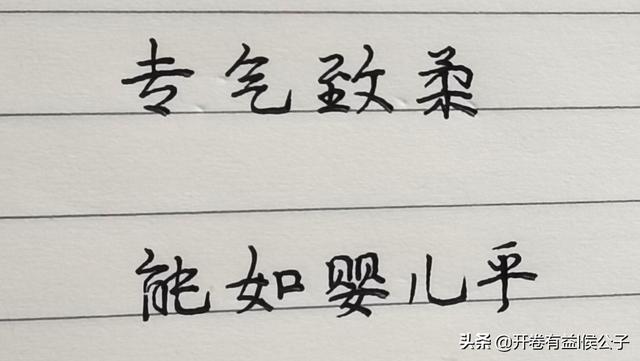 专气致柔
能如婴儿乎
头条 @开卷有益|侯公子